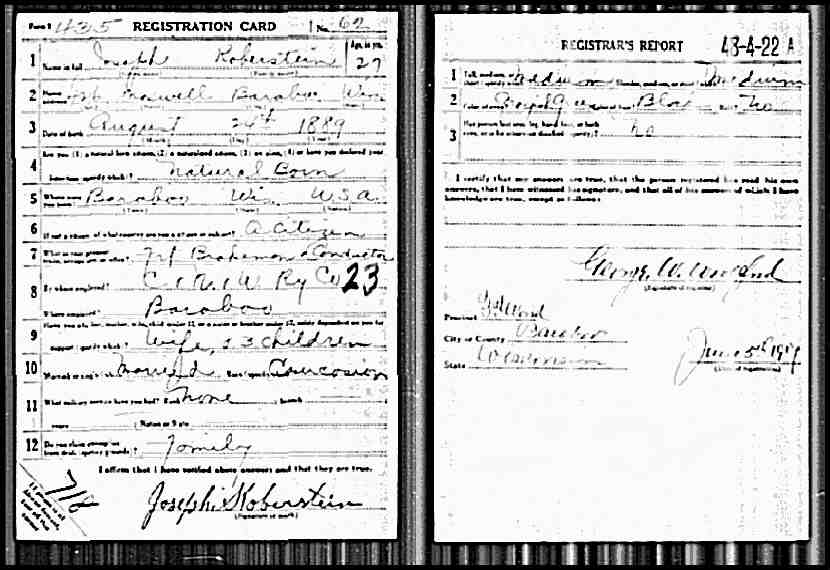 Form 1 435 REGISTRATION CARD No. 62
1 Name in full Joseph Koberstein Age, in yrs. 27
2 Home address Maxwell Baraboo Wis
3 Date of birth August 24th 1889
4 Are you (1) a natural born citizen, (2) a naturalized citizen, (3) an alien, (4) or have you declared your
intention (specify which)? Natural Born
5 Where were you born? Baraboo Wis USA
6 If not a citizen, of what country are you a citizen or subject? A Citizen
7 What is your present trade, occupation, or office? Frt Brakeman & Conductor
8 By whom employed? C & N W Ry Co 23
Where employed? Baraboo
9 Have you a father, mother, wife, child under 12, or a sister or brother under 12, solely dependent on you for
support (specify which)? Wife, & 3 children
10 Married or single (which)? Married Race (specify which)?
11 What military service have you had? Rank None ; branch
years ; Nation or State
12 Do you claim exemption from draft (specify grounds)? Family
I affirm that I have verified above answers and that they are true.
718
Joseph Koberstein
(Signature or mark)
REGISTRAR'S REPORT 48-4-22 A
1 Tall, medium, or short (specify which)? Medium Slender, medium, or stout (which)? Medium
2 Color of eyes Color of hair Bald? No
3 Has person lost arm, leg, hand, foot, or both
eyes, or is he otherwise disabled (specify)? No
I certify that my answers are true, that the person registered has read his own
answers, that I have witnessed his signature, and that all of his answers of which I have
knowledge are true, except as follows:
George W.
(Signature of registrar)
Precinct Ward
City or County Baraboo
State Wisconsin
June 5th 1917
(Date of registration)